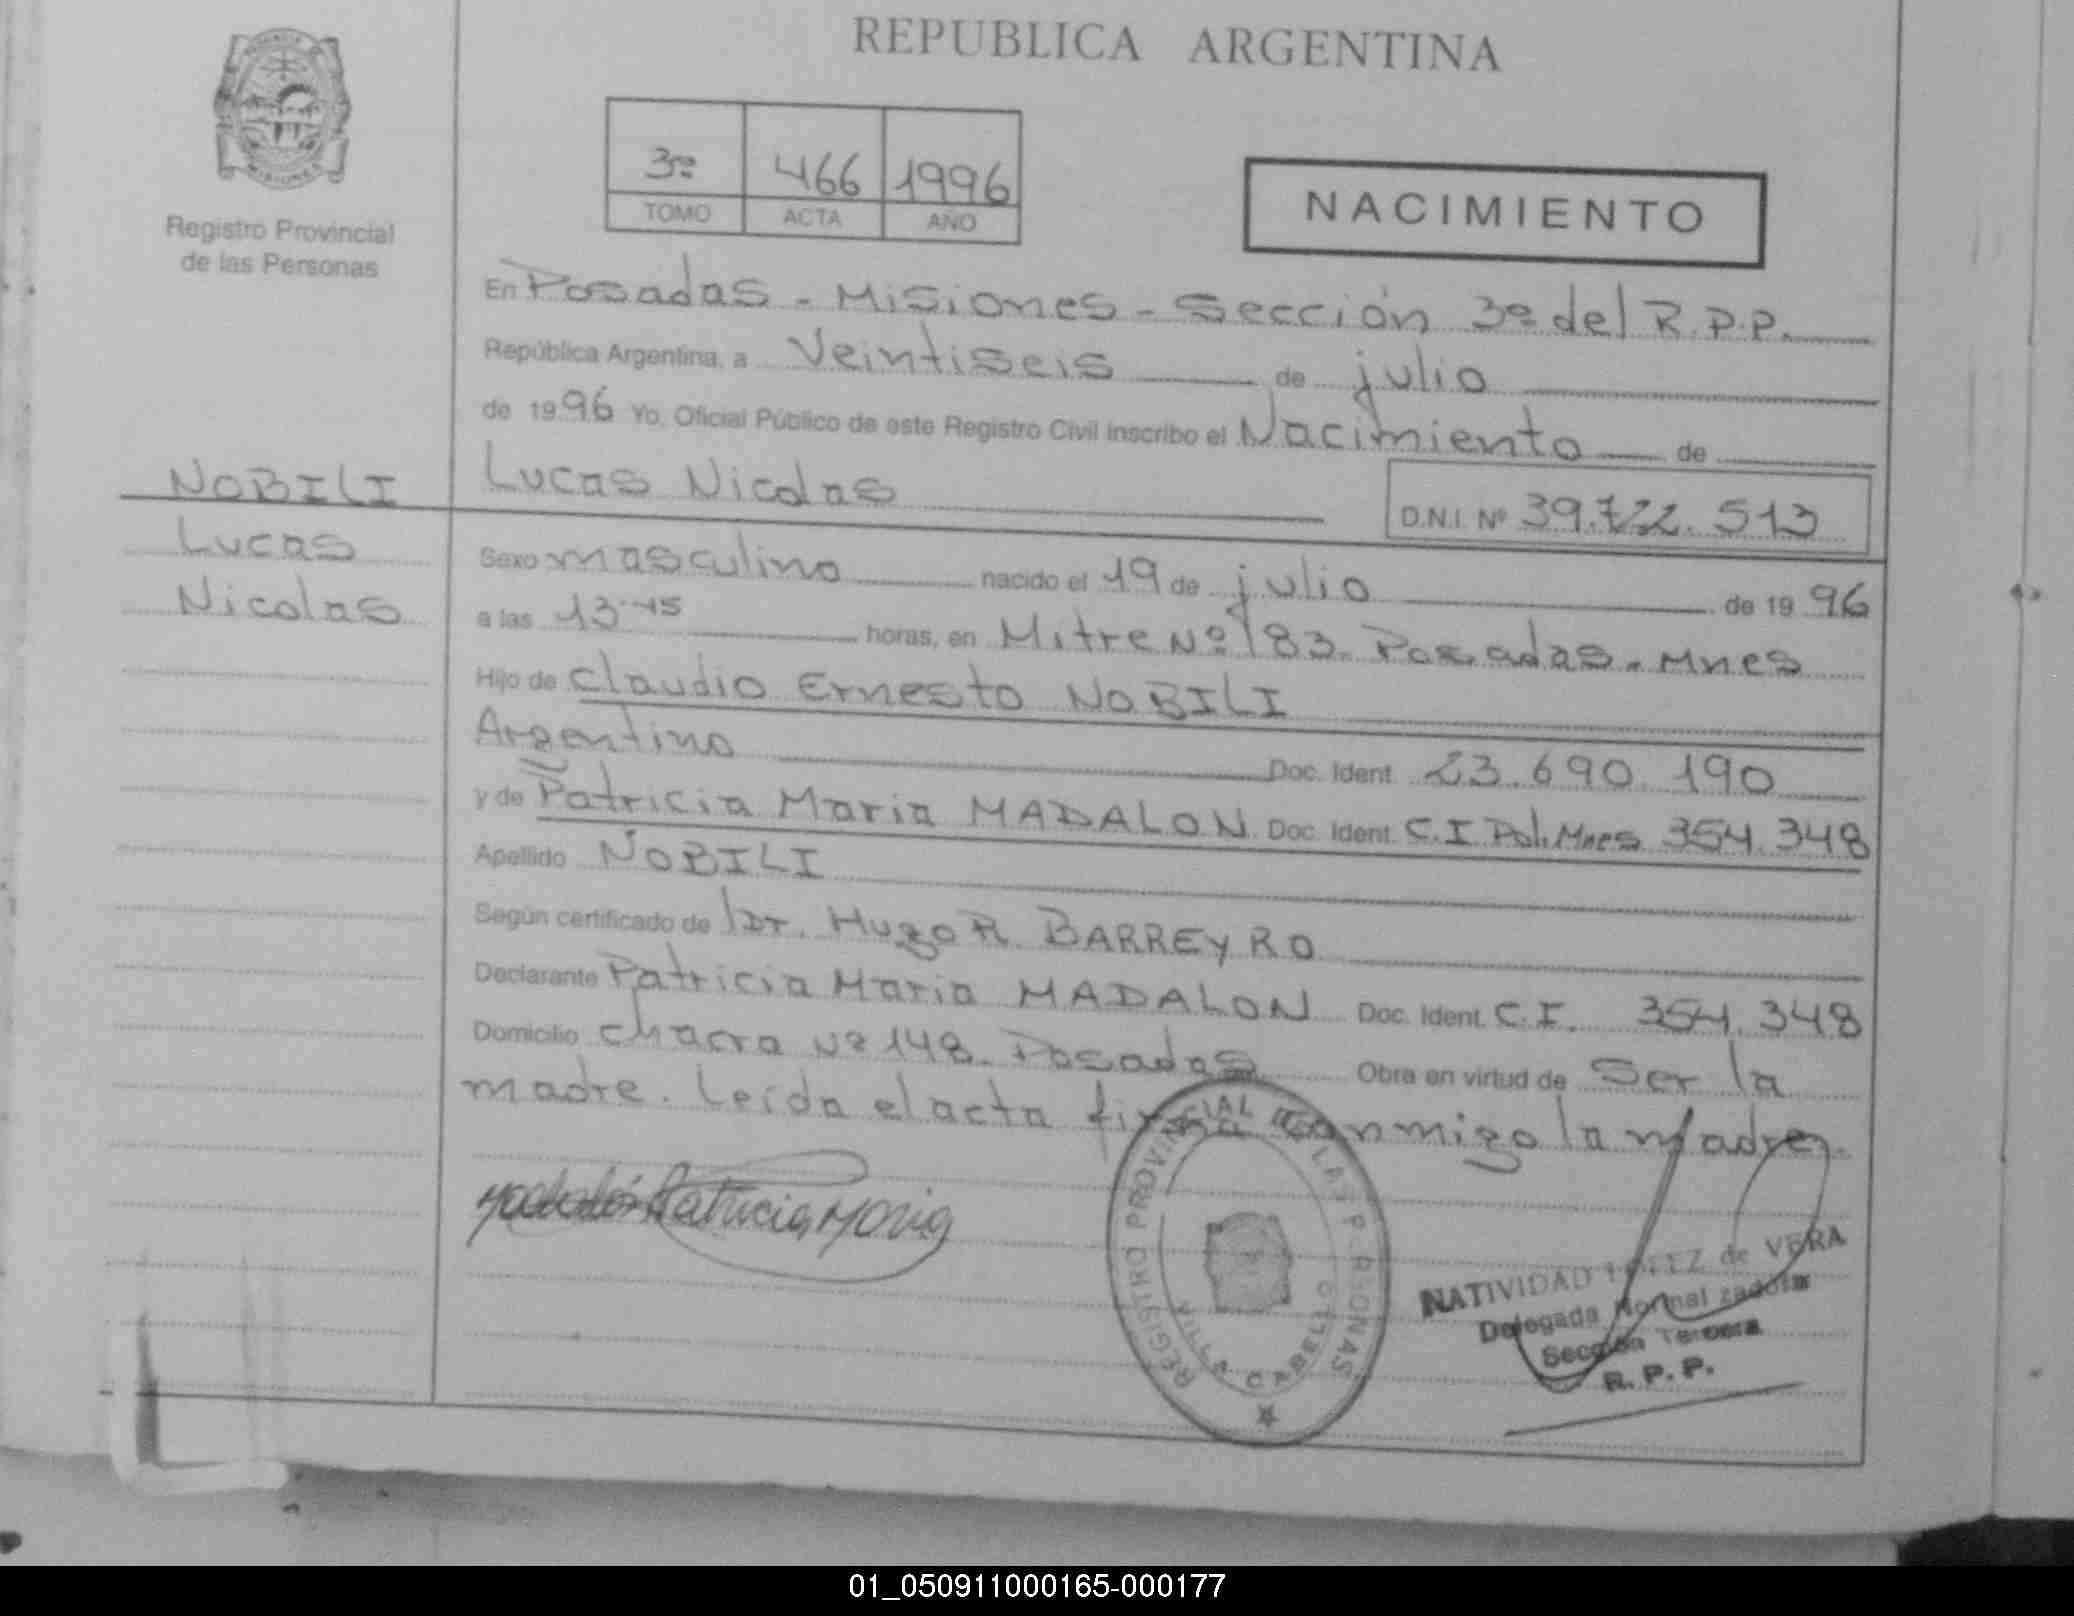 REPUBLICA ARGENTINA
3ro 466 1996
TOMO ACTA AÑO
NACIMIENTO
Registro Provincial
de las Personas
En Posadas - Misiones - Sección 3º del R.P.P.
República Argentina, a Veintiseis de julio
de 1996 Yo, Oficial Público de este Registro Civil inscribo el Nacimiento de
Lucas Nicolas D.N.I. Nº 39.722.513
NOBILI
Lucas
Nicolas
Sexo masculino nacido el 19 de julio de 1996
a las 13 horas, en Mitre Nº 183. Posadas. Mnes
Hijo de Claudio Ernesto NOBILI
Argentino Doc. Ident. 23.690.190
y de Patricia Maria MADALON Doc. Ident. C.I Pol. Mnes 354.348
Apellido NOBILI
Según certificado de Dr. Hugo R. BARREYRO
Declarante Patricia Maria MADALON Doc. Ident. C.I. 354.348
Domicilio Chacra Nº 148. Posadas Obra en virtud de Ser la
madre. Leída el acta firma conmigo la madre.
Patricia Maria
REGISTRO PROVINCIAL DE LAS PERSONAS
VILLA CABELLO
NATIVIDAD LOPEZ de VERA
Delegada Normalizadora
Sección Tercera
R.P.P.
01_050911000165-000177